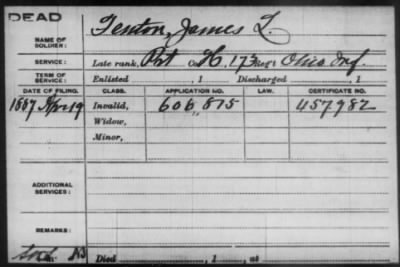 DEAD
NAME OF SOLDIER: Tenton, James L.
SERVICE: Late rank, Pvt Co. H, 173 Reg't Ohio Inf.
TERM OF SERVICE: Enlisted , 1 Discharged , 1
DATE OF FILING. CLASS. APPLICATION NO. LAW. CERTIFICATE NO.
1887 Apr 19 Invalid, 606 875 457982
Widow,
Minor,
ADDITIONAL SERVICES:
REMARKS:
Died , 1 , at